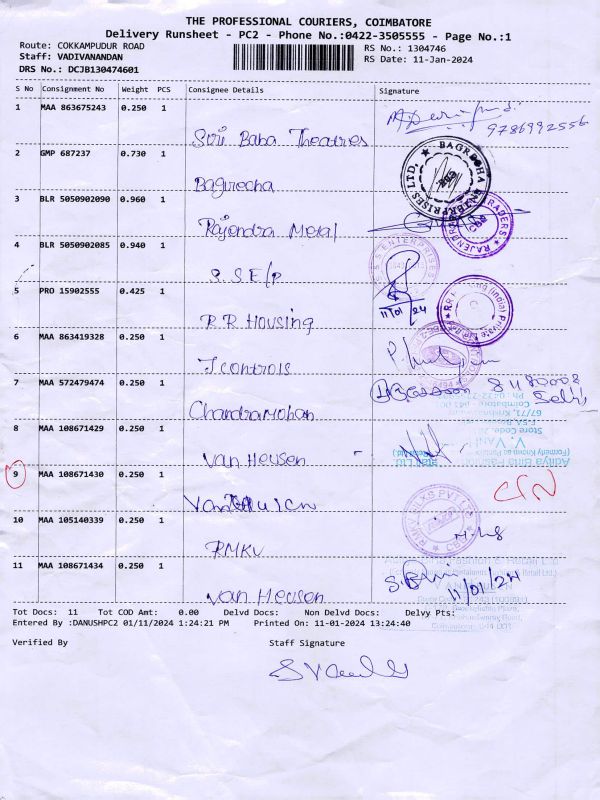 THE PROFESSIONAL COURIERS, COIMBATORE
Delivery Runsheet - PC2 - Phone No.:0422-3505555 - Page No.:1
Route: COKKAMPUDUR ROAD
RS No.: 1304746
Staff: VADIVANANDAN
RS Date: 11-Jan-2024
DRS No.: DCJB130474601
S No Consignment No Weight PCS Consignee Details Signature
1 MAA 863675243 0.250 1
9786992556
Sri Baba Theatres
2 GMP 687237 0.730 1
BAGRECHA ENTERPRISES LTD.
Bagrecha
3 BLR 5050902090 0.960 1
Rajendra Metal
4 BLR 5050902085 0.940 1
S.S ENTERPRISES
S.S E/P
11/01/24
5 PRO 15902555 0.425 1
R.R Housing
6 MAA 863419328 0.250 1
J controls
7 MAA 572479474 0.250 1
Chandramohan
8 MAA 108671429 0.250 1
Van Heusen
9 MAA 108671430 0.250 1
10 MAA 105140339 0.250 1
RMKV SILKS PVT LTD
RMKV
11 MAA 108671434 0.250 1
11/01/24
Van Heusen
Tot Docs: 11 Tot COD Amt: 0.00 Delvd Docs: Non Delvd Docs: Delvy Pts:
Entered By :DANUSHPC2 01/11/2024 1:24:21 PM Printed On: 11-01-2024 13:24:40
Verified By Staff Signature